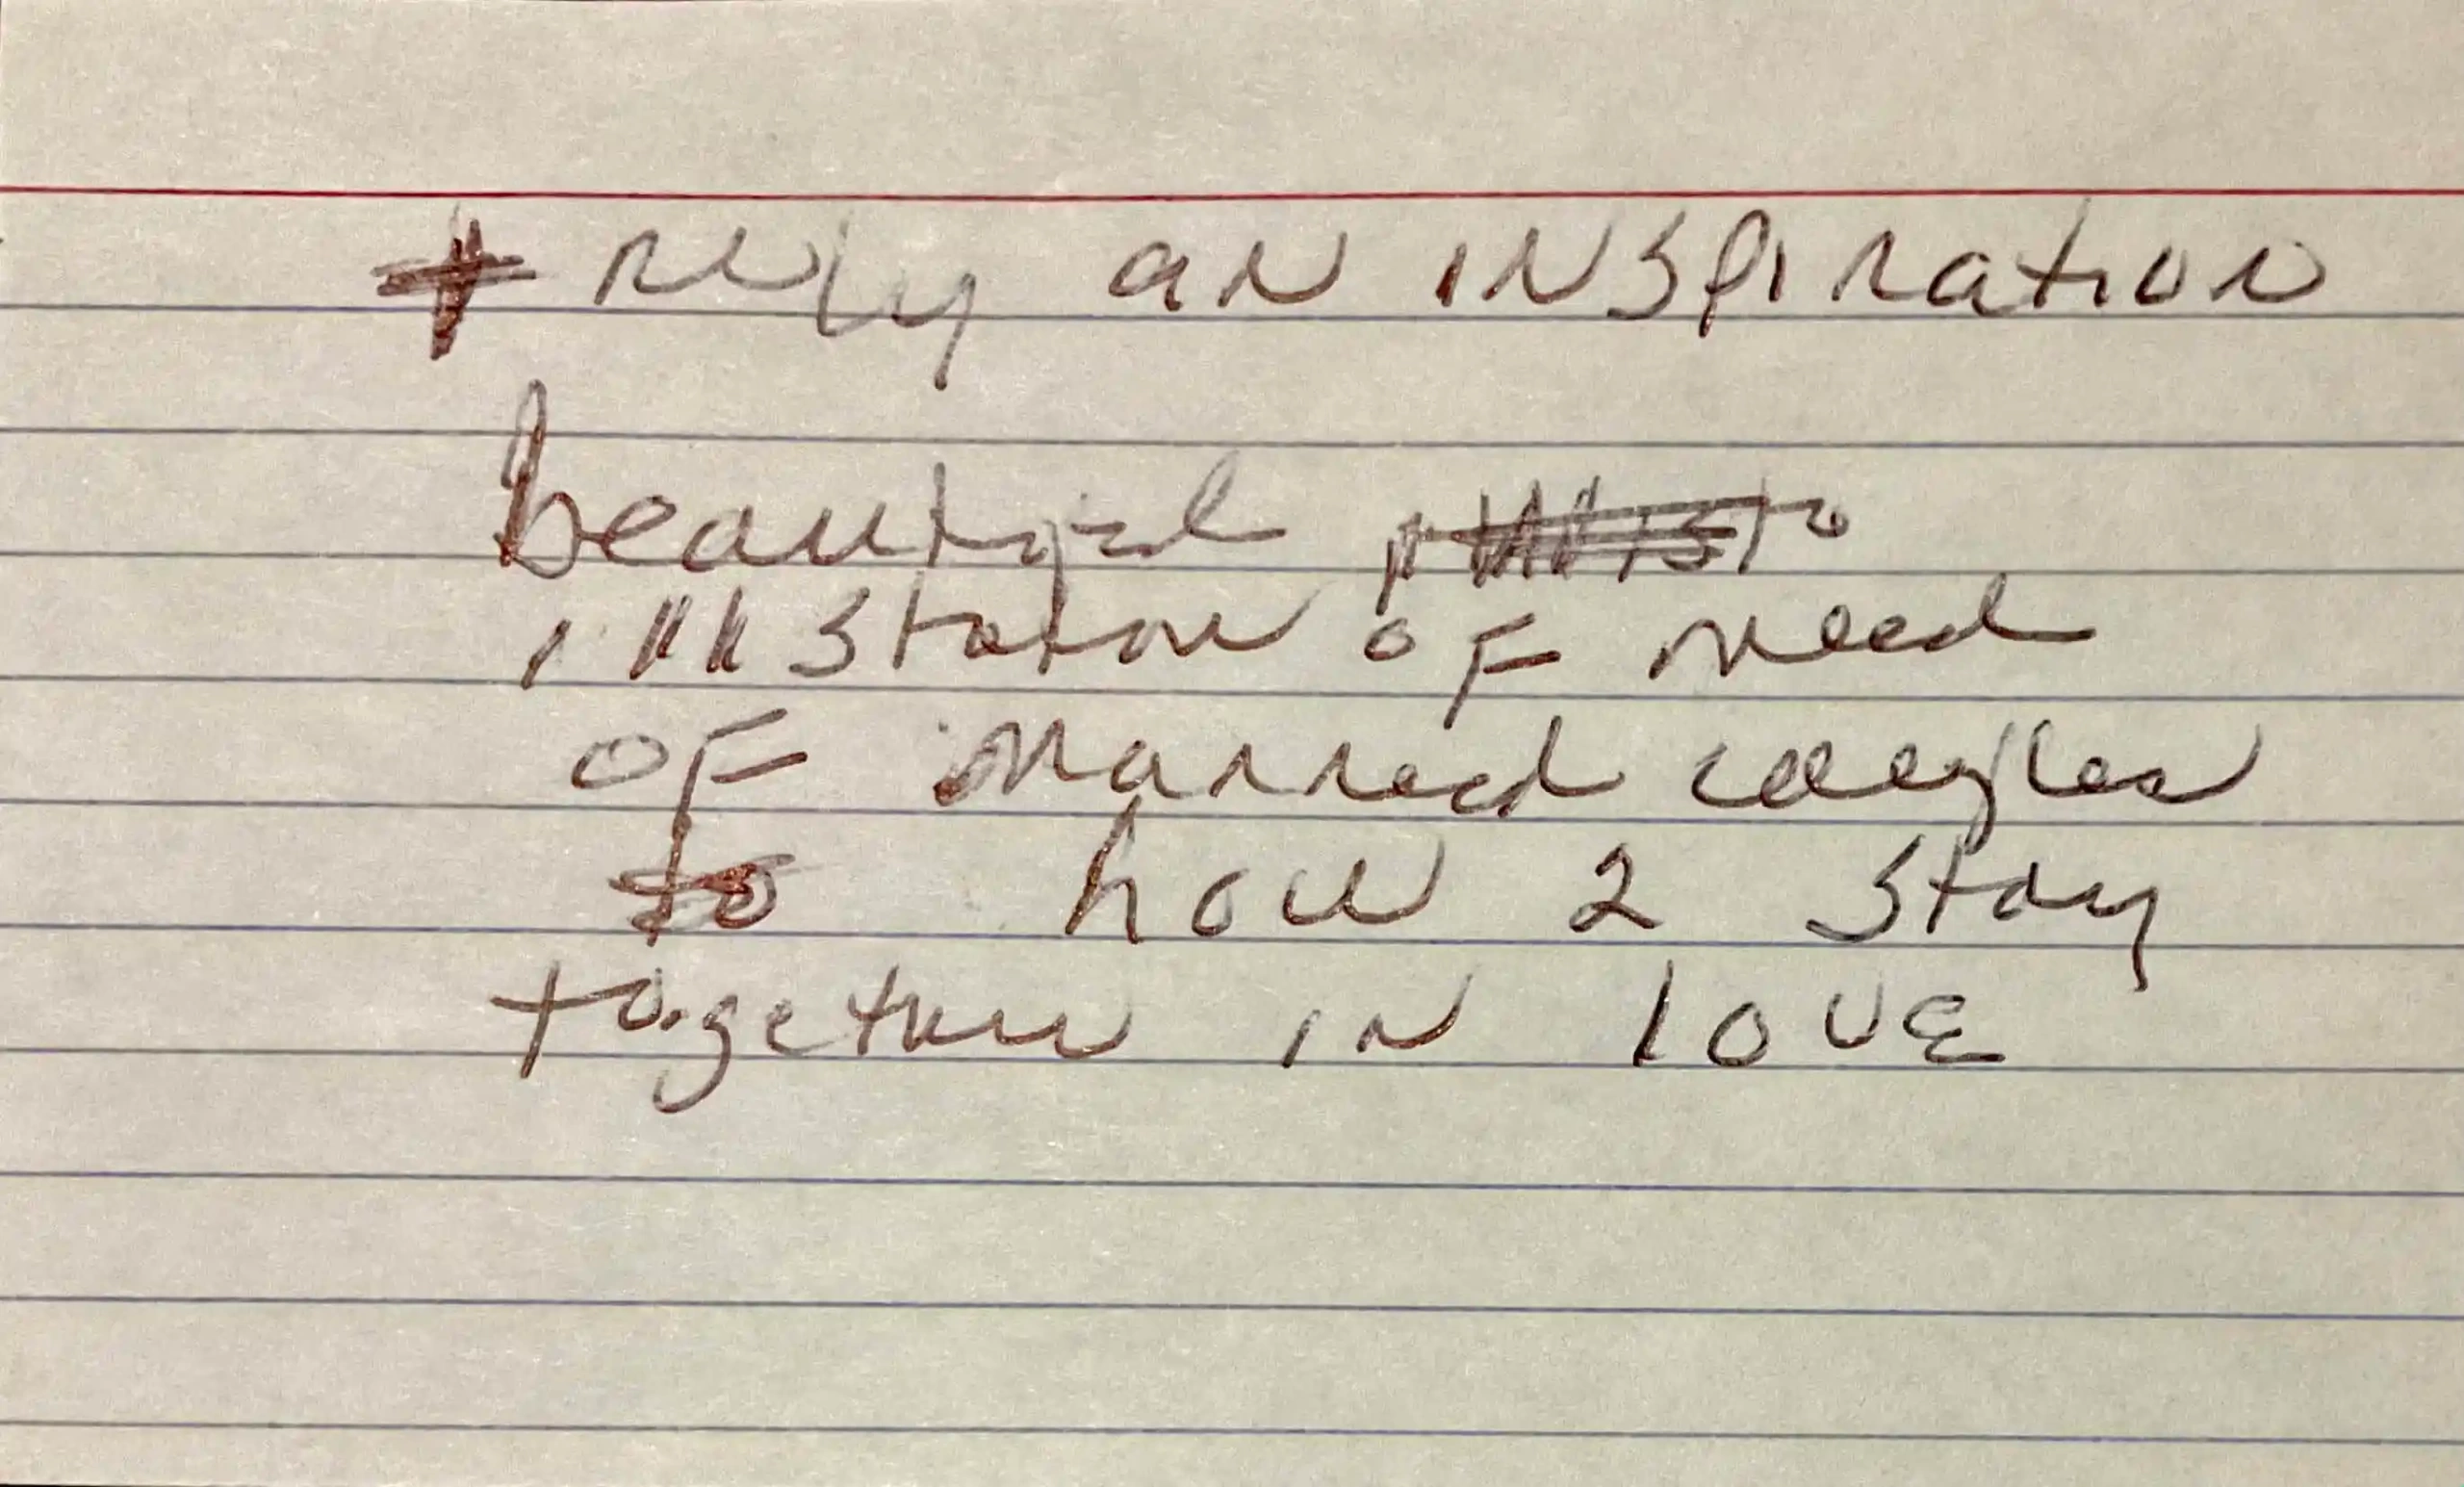 truly an inspiration
beautiful
illustation of need
of married couples
to how 2 stay
together in love